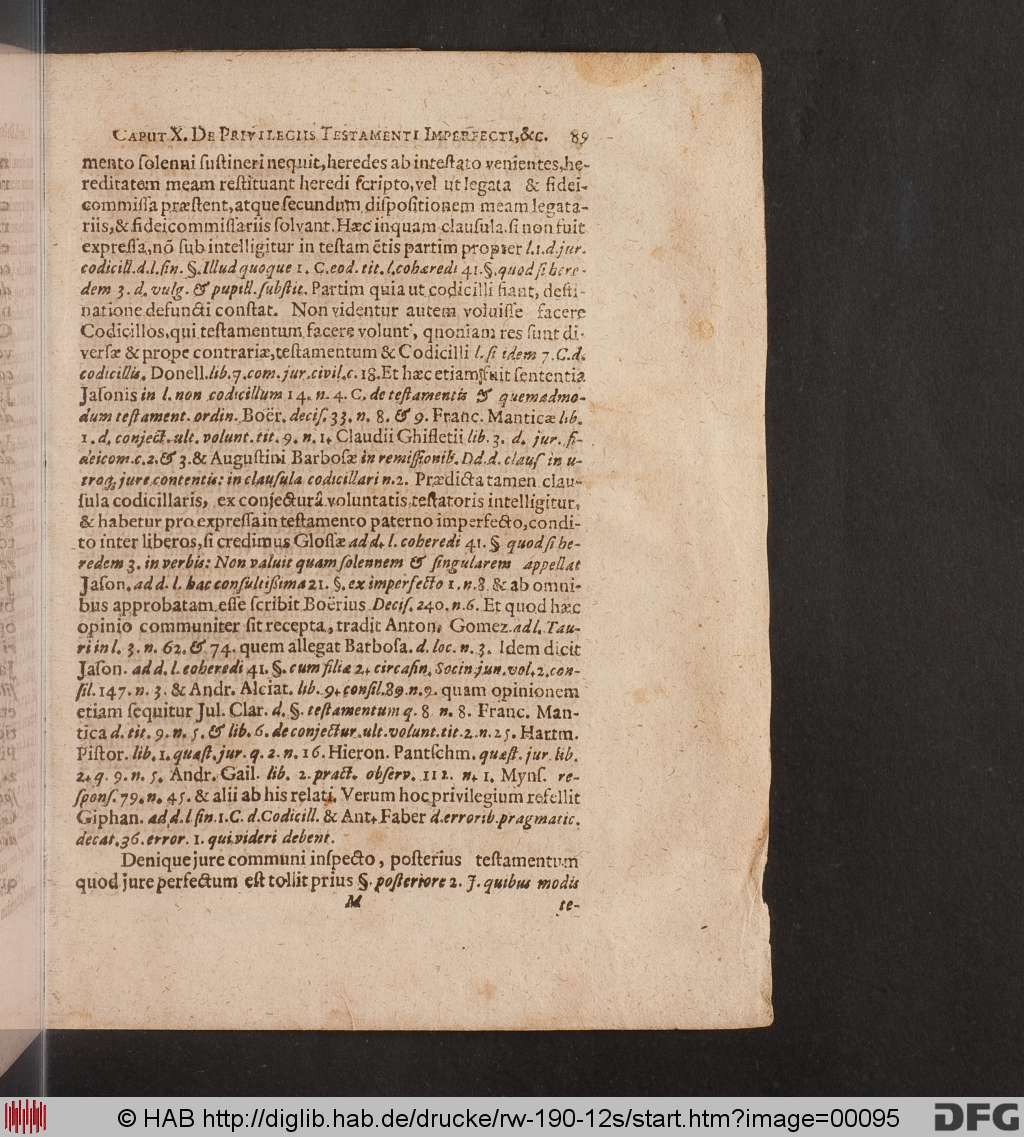 CAPUT X. DE PRIVILEGIIS TESTAMENTI IMPERFECTI, &c. 89
mento ſolenni ſuſtineri nequit, heredes ab inteſtato venientes, he-
reditatem meam reſtituant heredi ſcripto, vel ut legata & fidei-
commiſſa præſtent, atque ſecundum diſpoſitionem meam legata-
riis, & fideicommiſſariis ſolvant. Hæc inquam clauſula, ſi non fuit
expreſſa, nõ ſub intelligitur in teſtam ẽtis partim propter l. 1. d. jur.
codicill. d. l. fin. §. Illud quoque 1. C. eod. tit. l. cohæredi 41. §. quod ſi here-
dem 3. d. vulg. & pupill. ſubſtit. Partim quia ut codicilli fiant, deſti-
natione defuncti conſtat. Non videntur autem voluiſſe facere
Codicillos, qui teſtamentum facere volunt, quoniam res ſunt di-
verſæ & prope contrariæ, teſtamentum & Codicilli l. ſi idem 7. C. d.
codicillis. Donell. lib. 7. com. jur. civil. c. 18. Et hæc etiam fuit ſententia
Jaſonis in l. non codicillum 14. n. 4. C. de teſtamentis & quemadmo-
dum teſtament. ordin. Boër. deciſ. 33. n. 8. & 9. Franc. Manticæ lib.
1. d. conject. ult. volunt. tit. 9. n. 1. Claudii Ghifletii lib. 3. d. jur. fi-
deicom. c. 2. & 3. & Auguſtini Barboſæ in remiſſionib. Dd. d. clauſ in u-
troq; jure contentis: in clauſula codicillari n. 2. Prædicta tamen clau-
ſula codicillaris, ex conjecturâ voluntatis teſtatoris intelligitur,
& habetur pro expreſſa in teſtamento paterno imperfecto, condi-
to inter liberos, ſi credimus Gloſſæ ad d. l. coheredi 41. § quod ſi he-
redem 3. in verbis: Non valuit quam ſolennem & ſingularem appellat
Jaſon. ad d. l. hac conſultißima 21. §. ex imperfecto 1. n. 8. & ab omni-
bus approbatam eſſe ſcribit Boërius Deciſ. 240. n. 6. Et quod hæc
opinio communiter ſit recepta, tradit Anton. Gomez. ad l. Tau-
ri in l. 3. n. 62. & 74. quem allegat Barboſa. d. loc. n. 3. Idem dicit
Jaſon. ad d. l. coheredi 41. §. cum filiæ 2. circa fin. Socin. jun. vol. 2. con-
ſil. 147. n. 3. & Andr. Alciat. lib. 9. conſil. 89. n. 9. quam opinionem
etiam ſequitur Jul. Clar. d. §. teſtamentum q. 8 n. 8. Franc. Man-
tica d. tit. 9. n. 5. & lib. 6. de conjectur. ult. volunt. tit. 2. n. 25. Hartm.
Piſtor. lib. 1. quæſt. jur. q. 2. n. 16. Hieron. Pantſchm. quæſt. jur. lib.
2. q. 9. n. 5. Andr. Gail. lib. 2. pract. obſerv. 112. n. 1. Mynſ. re-
ſponſ. 79. n. 45. & alii ab his relati. Verum hoc privilegium refellit
Giphan. ad d. l fin. 1. C. d. Codicill. & Ant. Faber d. errorib. pragmatic.
decat. 36. error. 1. qui videri debent.
Denique jure communi inſpecto, poſterius teſtamentum
quod jure perfectum eſt tollit prius §. poſteriore 2. J. quibus modis
M te-
© HAB http://diglib.hab.de/drucke/rw-190-12s/start.htm?image=00095
DFG